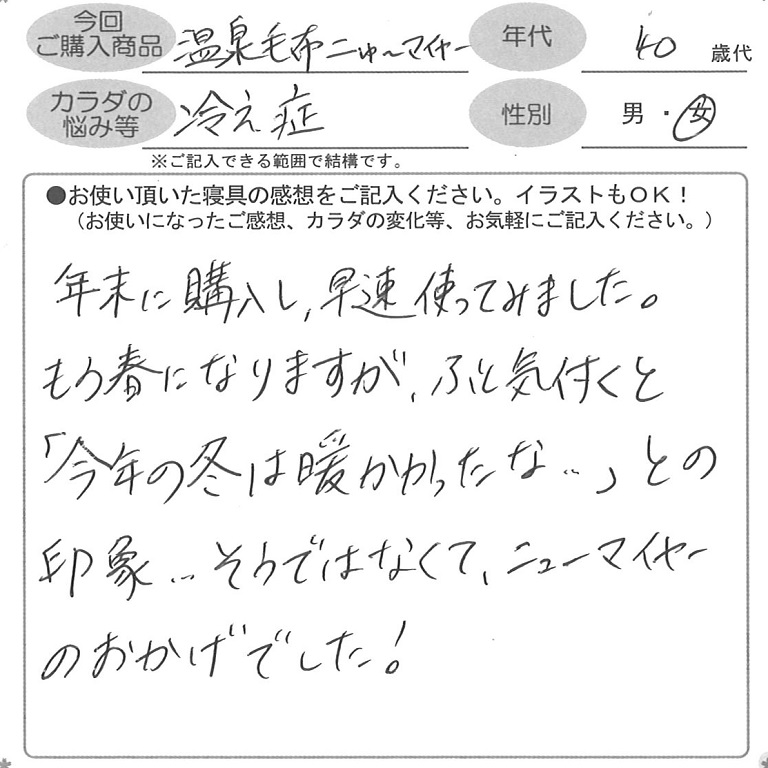 今回
ご購入商品
温泉毛布ニューマイヤー
年代
40 歳代
カラダの
悩み等
冷え症
性別
男・女
※ご記入できる範囲で結構です。
●お使い頂いた寝具の感想をご記入ください。イラストもOK！
（お使いになったご感想、カラダの変化等、お気軽にご記入ください。）
年末に購入し、早速使ってみました。
もう春になりますが、ふと気付くと
「今年の冬は暖かかったな…」との
印象…そうではなくて、ニューマイヤー
のおかげでした！